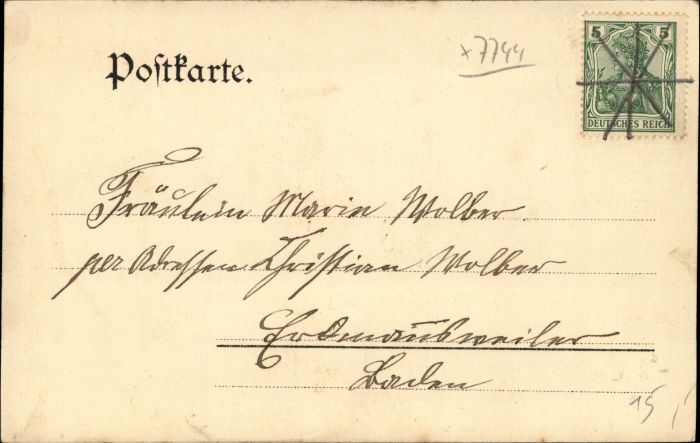 Postkarte.
x7744
5 5
DEUTSCHES REICH
Fräulein Marie Wolber
per Adressen Christian Wolber
Erdmannsweiler
Baden
15